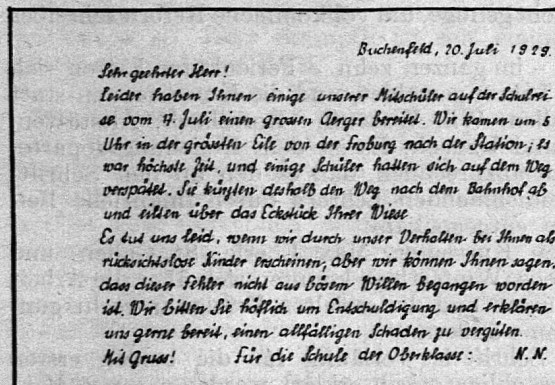 Buchenfeld, 20. Juli 1929.
Sehr geehrter Herr!
Leider haben Ihnen einige unserer Mitschüler auf der Schulrei-
se vom 7. Juli einen grossen Aerger bereitet. Wir kamen um 5
Uhr in der grössten Eile von der Froburg nach der Station; es
war höchste Zeit, und einige Schüler hatten sich auf dem Weg
verspätet. Sie kürzten deshalb den Weg nach dem Bahnhof ab
und eilten über das Eckstück Ihrer Wiese.
Es tut uns leid, wenn wir durch unser Verhalten bei Ihnen als
rücksichtslose Kinder erscheinen; aber wir können Ihnen sagen,
dass dieser Fehler nicht aus bösem Willen begangen worden
ist. Wir bitten Sie höflich um Entschuldigung und erklären
uns gerne bereit, einen allfälligen Schaden zu vergüten.
Mit Gruss! Für die Schule der Oberklasse: N. N.